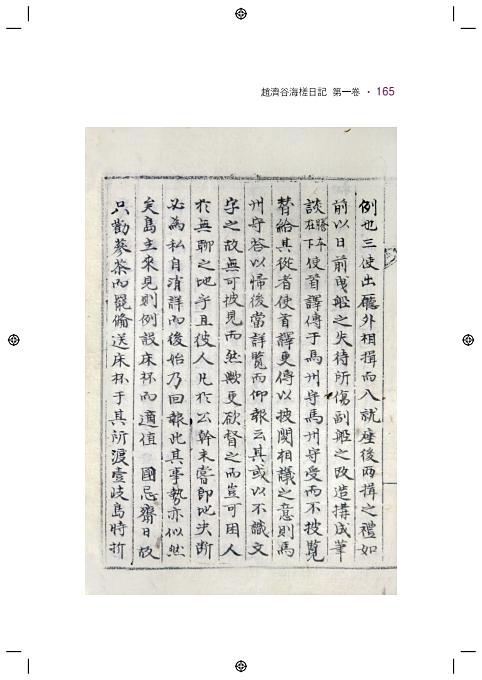 趙濟谷海槎日記 第一卷 · 165
例也三使出廳外相揖而入就座後兩揖之禮如
前以日前曳船之失待所傷副船之改造搆成筆
談勝本在下使首譯傳于馬州守馬州守受而不披覽
替給其從者使首譯更傳以披閱相議之意則馬
州守答以歸後當詳覽而仰報云其或以不識文
字之故無可披見而然歟更欲督之而豈可困人
於無聊之地乎且彼人凡於公幹未嘗卽地決斷
必爲私自消詳而後始乃回報此其事勢亦似然
矣島主來見則例設床杯而適値 國忌齋日故
只勸蔘茶而罷備送床杯于其所浪壹岐島時折